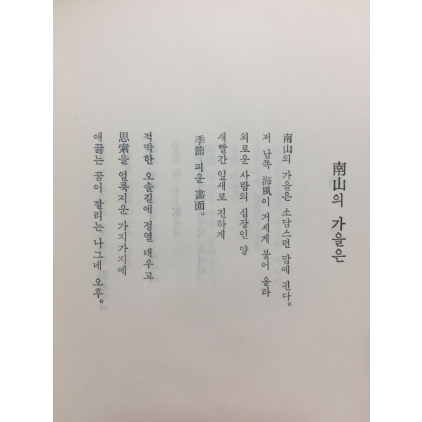 南山의 가을은
南山의 가을은 소담스런 맘에 핀다.
저 남쪽 海風이 거세게 불어 올라
외로운 사람의 심장인 양
새빨간 잎새로 진하게
季節 피운 畵面。
적막한 오솔길에 정열 태우고
思索을 얼룩지운 가지가지에
애끓는 꿈이 깔리는 나그네 오후。